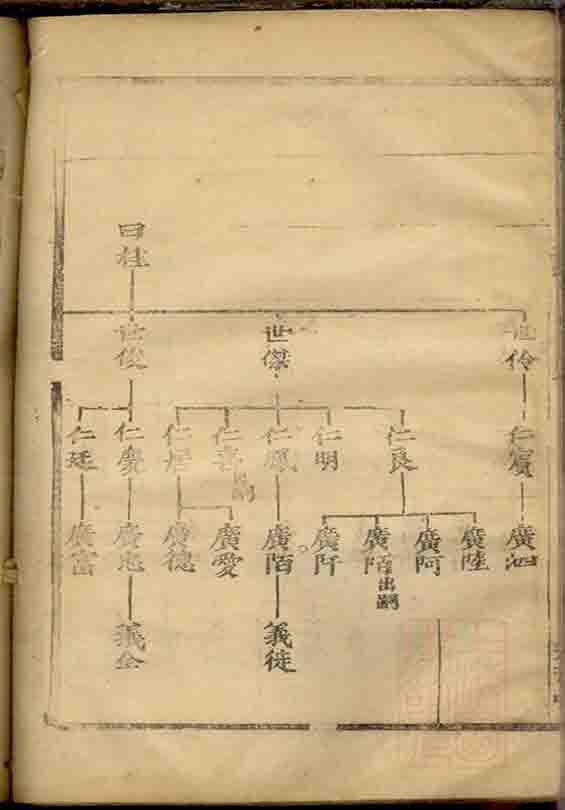 曰桂
世伶
世傑
世俊
仁賓
仁良
仁明
仁鳳
仁喜
仁居
仁慶
仁廷
廣泗
廣陸
廣阿
廣陌出嗣
廣阡
廣陌
廣愛
廣德
廣忠
廣富
義徙
義全